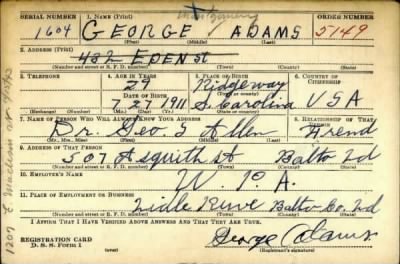 SERIAL NUMBER 1. NAME (Print) Montgomery ORDER NUMBER
1604 GEORGE ADAMS 5149
(First) (Middle) (Last)
2. ADDRESS (Print)
432 EDEN St
(Number and street or R. F. D. number) (Town) (County) (State)
3. TELEPHONE 4. AGE IN YEARS 5. PLACE OF BIRTH 6. COUNTRY OF CITIZENSHIP
29 Ridgeway
DATE OF BIRTH (Town or county)
7 27 1911 S. Carolina USA
(Exchange) (Number) (Mo.) (Day) (Yr.) (State or country)
7. NAME OF PERSON WHO WILL ALWAYS KNOW YOUR ADDRESS 8. RELATIONSHIP OF THAT PERSON
Dr. Geo. S Allen Friend
(Mr., Mrs., Miss) (First) (Middle) (Last)
9. ADDRESS OF THAT PERSON
507 Asquith St Balto Md
(Number and street or R. F. D. number) (Town) (County) (State)
10. EMPLOYER'S NAME
W. P. A.
11. PLACE OF EMPLOYMENT OR BUSINESS
Balto Co. Md
(Number and street or R. F. D. number) (Town) (County) (State)
I AFFIRM THAT I HAVE VERIFIED ABOVE ANSWERS AND THAT THEY ARE TRUE.
REGISTRATION CARD
D. S. S. FORM 1 George Adams
(Registrant's signature)
1207 E. Madison St